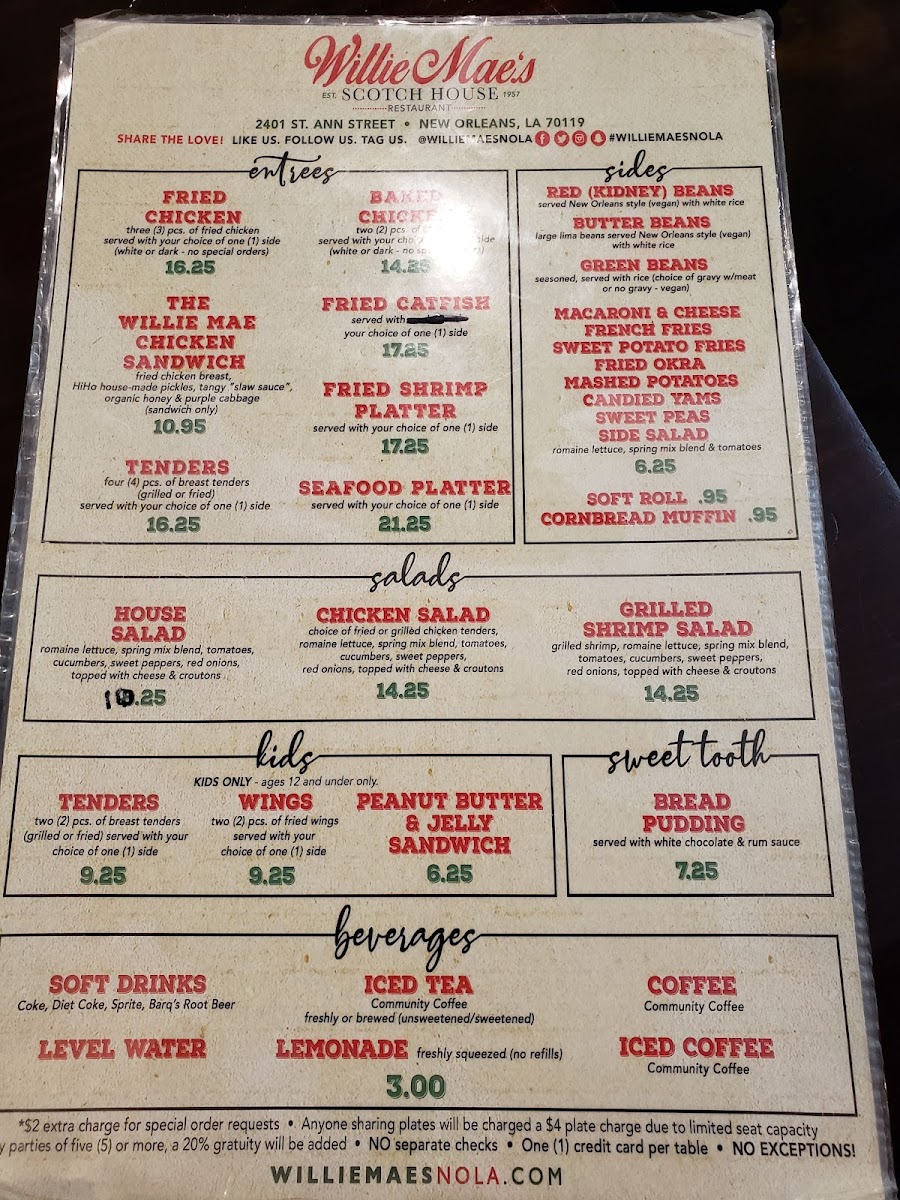 Willie Mae's
EST. SCOTCH HOUSE 1957
RESTAURANT
2401 ST. ANN STREET • NEW ORLEANS, LA 70119
SHARE THE LOVE! LIKE US. FOLLOW US. TAG US. @WILLIEMAESNOLA #WILLIEMAESNOLA
entrees
FRIED
CHICKEN
three (3) pcs. of fried chicken
served with your choice of one (1) side
(white or dark - no special orders)
16.25
THE
WILLIE MAE
CHICKEN
SANDWICH
fried chicken breast,
HiHo house-made pickles, tangy "slaw sauce",
organic honey & purple cabbage
(sandwich only)
10.95
TENDERS
four (4) pcs. of breast tenders
(grilled or fried)
served with your choice of one (1) side
16.25
BAKED
CHICKEN
two (2) pcs. of
served with your choice side
(white or dark - no
14.25
FRIED CATFISH
served with
your choice of one (1) side
17.25
FRIED SHRIMP
PLATTER
served with your choice of one (1) side
17.25
SEAFOOD PLATTER
served with your choice of one (1) side
21.25
sides
RED (KIDNEY) BEANS
served New Orleans style (vegan) with white rice
BUTTER BEANS
large lima beans served New Orleans style (vegan)
with white rice
GREEN BEANS
seasoned, served with rice (choice of gravy w/meat
or no gravy - vegan)
MACARONI & CHEESE
FRENCH FRIES
SWEET POTATO FRIES
FRIED OKRA
MASHED POTATOES
CANDIED YAMS
SWEET PEAS
SIDE SALAD
romaine lettuce, spring mix blend & tomatoes
6.25
SOFT ROLL .95
CORNBREAD MUFFIN .95
salads
HOUSE
SALAD
romaine lettuce, spring mix blend, tomatoes,
cucumbers, sweet peppers, red onions,
topped with cheese & croutons
10.25
CHICKEN SALAD
choice of fried or grilled chicken tenders,
romaine lettuce, spring mix blend, tomatoes,
cucumbers, sweet peppers,
red onions, topped with cheese & croutons
14.25
GRILLED
SHRIMP SALAD
grilled shrimp, romaine lettuce, spring mix blend,
tomatoes, cucumbers, sweet peppers,
red onions, topped with cheese & croutons
14.25
kids
KIDS ONLY - ages 12 and under only.
TENDERS
two (2) pcs. of breast tenders
(grilled or fried) served with your
choice of one (1) side
9.25
WINGS
two (2) pcs. of fried wings
served with your
choice of one (1) side
9.25
PEANUT BUTTER
& JELLY
SANDWICH
6.25
sweet tooth
BREAD
PUDDING
served with white chocolate & rum sauce
7.25
beverages
SOFT DRINKS
Coke, Diet Coke, Sprite, Barq's Root Beer
LEVEL WATER
ICED TEA
Community Coffee
freshly or brewed (unsweetened/sweetened)
LEMONADE freshly squeezed (no refills)
3.00
COFFEE
Community Coffee
ICED COFFEE
Community Coffee
*$2 extra charge for special order requests • Anyone sharing plates will be charged a $4 plate charge due to limited seat capacity
parties of five (5) or more, a 20% gratuity will be added • NO separate checks • One (1) credit card per table • NO EXCEPTIONS!
WILLIEMAESNOLA.COM